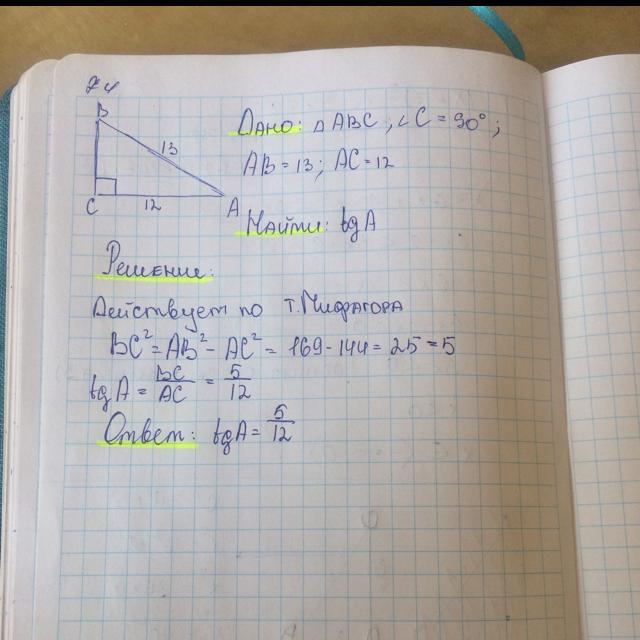 B
13
C
12
A
Дано: △ABC, ∠C = 90°;
AB = 13; AC = 12
Найти: tgA
Решение:
Действует по т. Пифагора
BC² = AB² - AC² = 169 - 144 = 25 = 5
tgA = BC/AC = 5/12
Ответ: tgA = 5/12